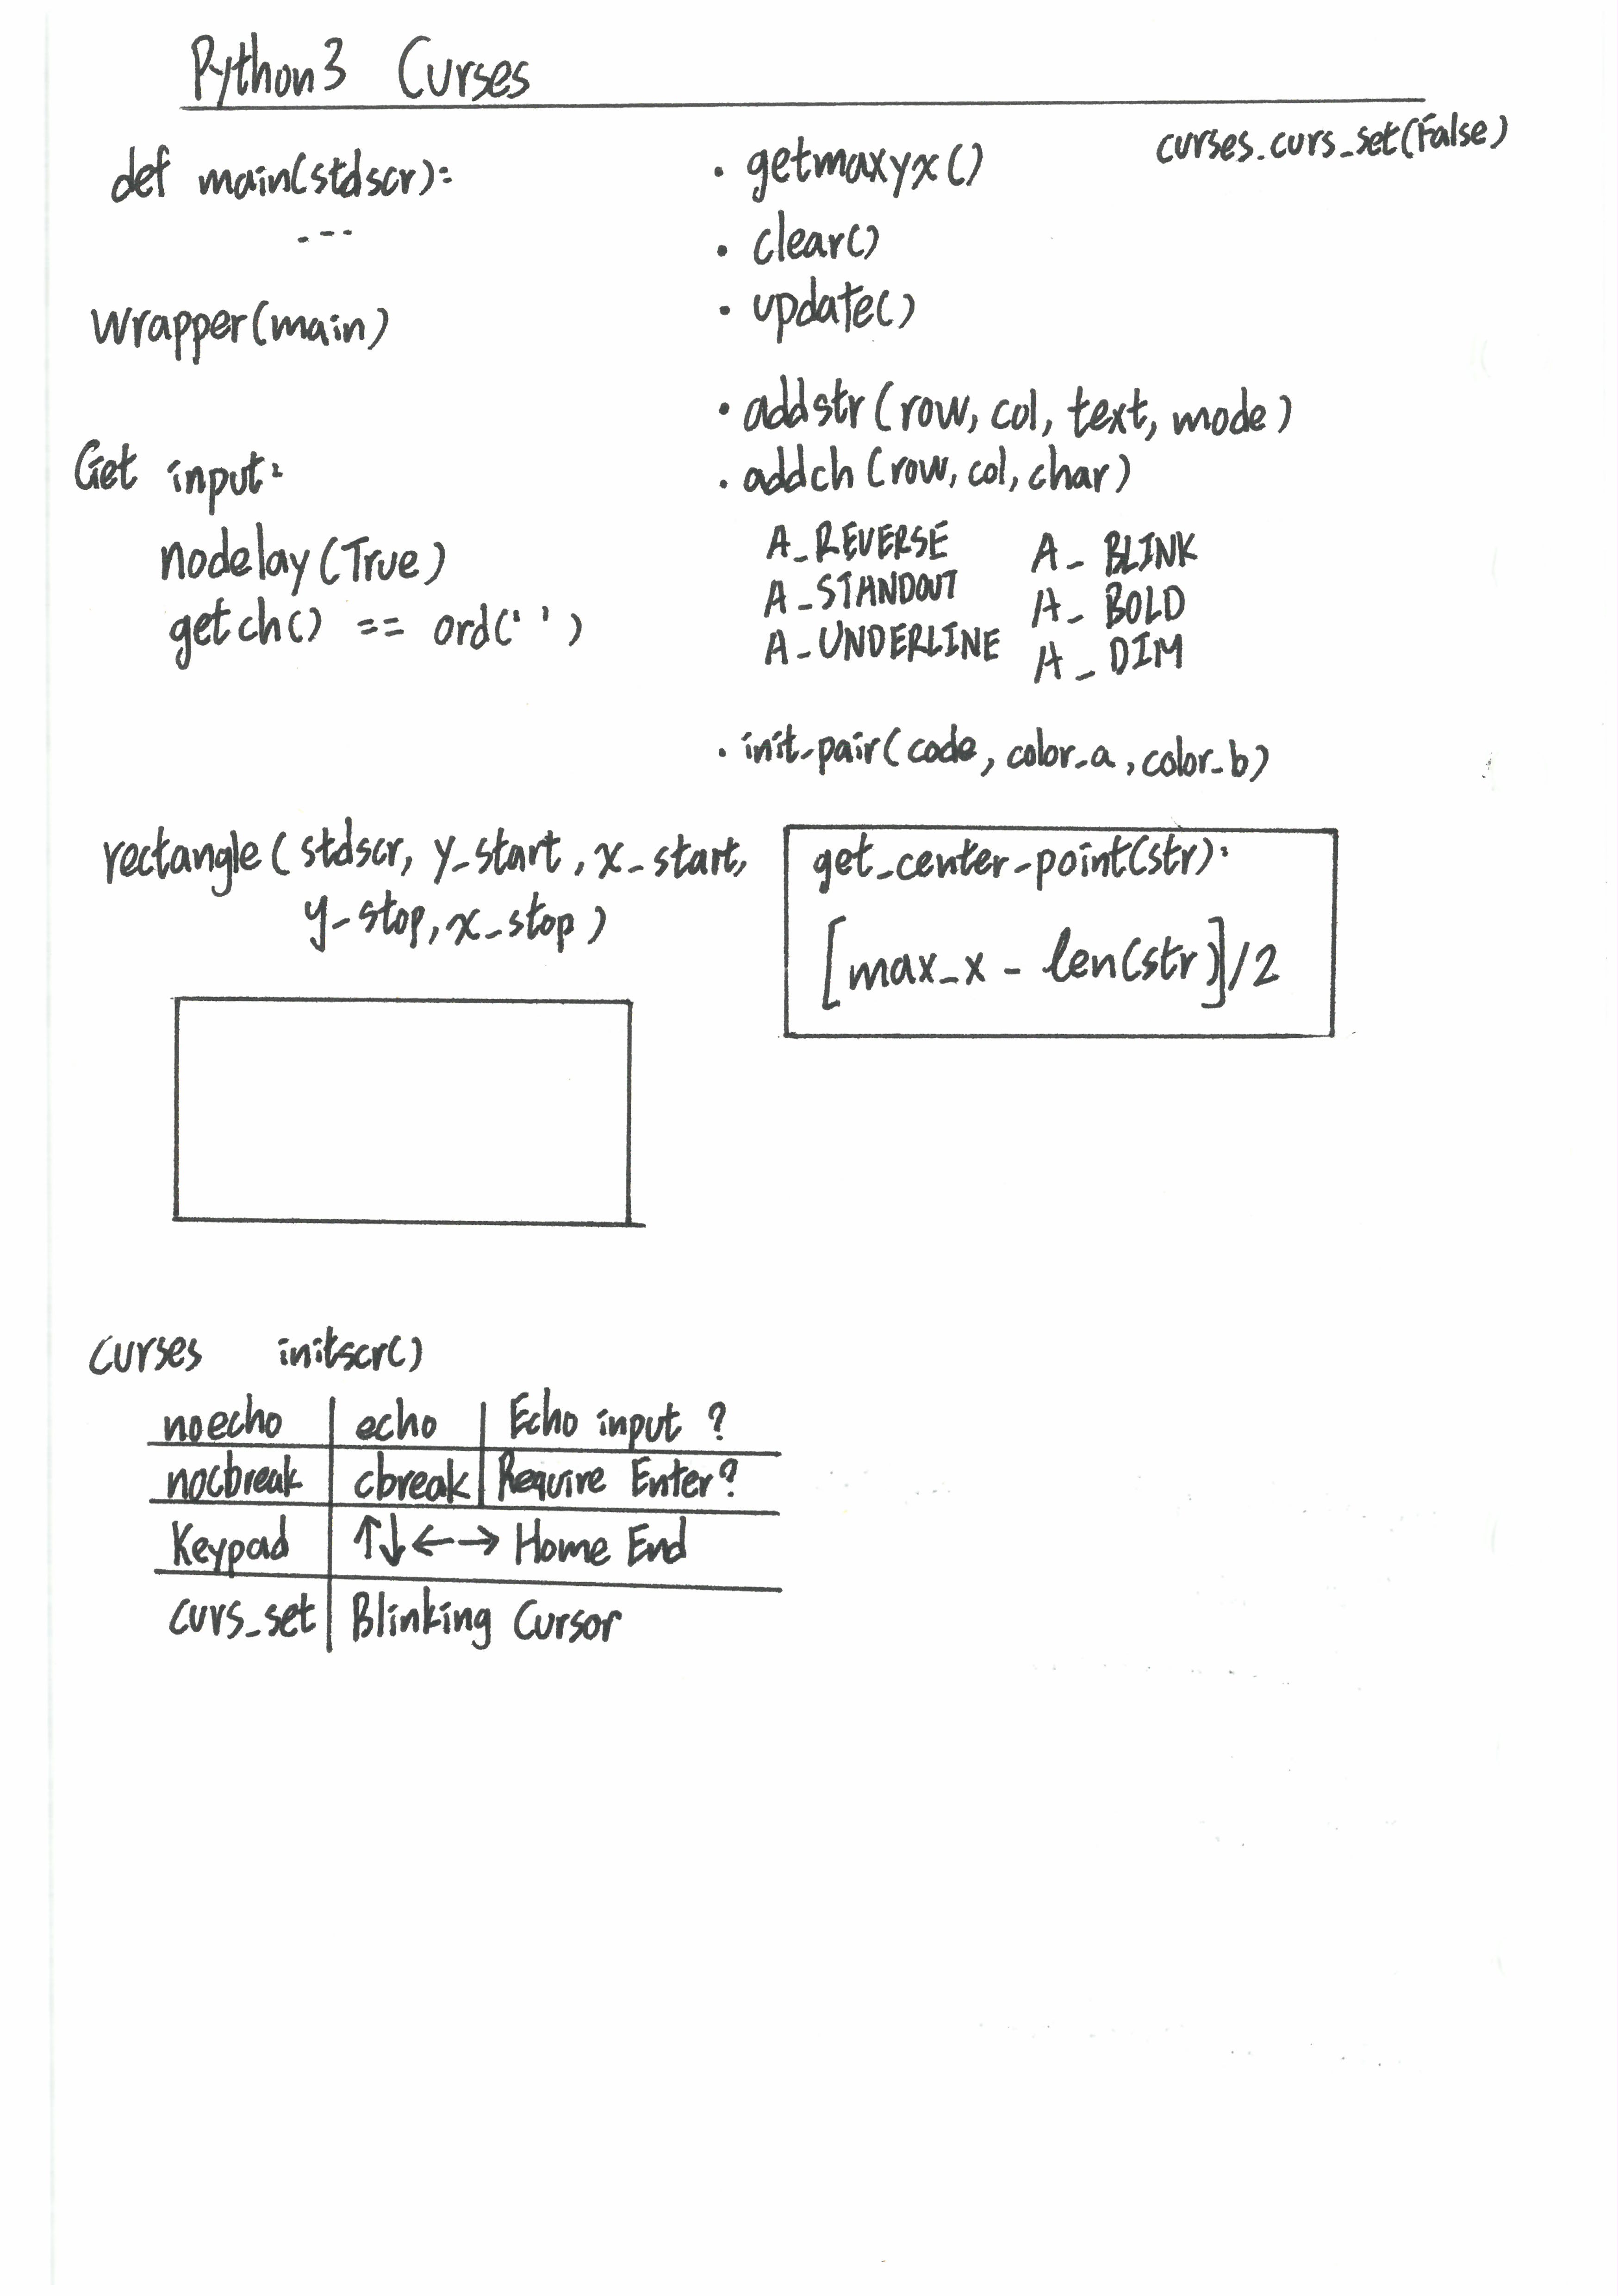 Python3 Curses
def main(stdscr):
---
wrapper(main)
Get input:
nodelay(True)
getch() == ord(' ')
• getmaxyx()
• clear()
• update()
• addstr(row, col, text, mode)
• addch(row, col, char)
A_REVERSE A_BLINK
A_STANDOUT A_BOLD
A_UNDERLINE A_DIM
• init_pair(code, color_a, color_b)
curses.curs_set(False)
rectangle(stdscr, y_start, x_start,
y_stop, x_stop)
get_center_point(str):
[max_x - len(str)]/2
Curses initscr()
noecho | echo | Echo input ?
nocbreak | cbreak | Require Enter?
Keypad | ↑↓←→ Home End
curs_set | Blinking Cursor